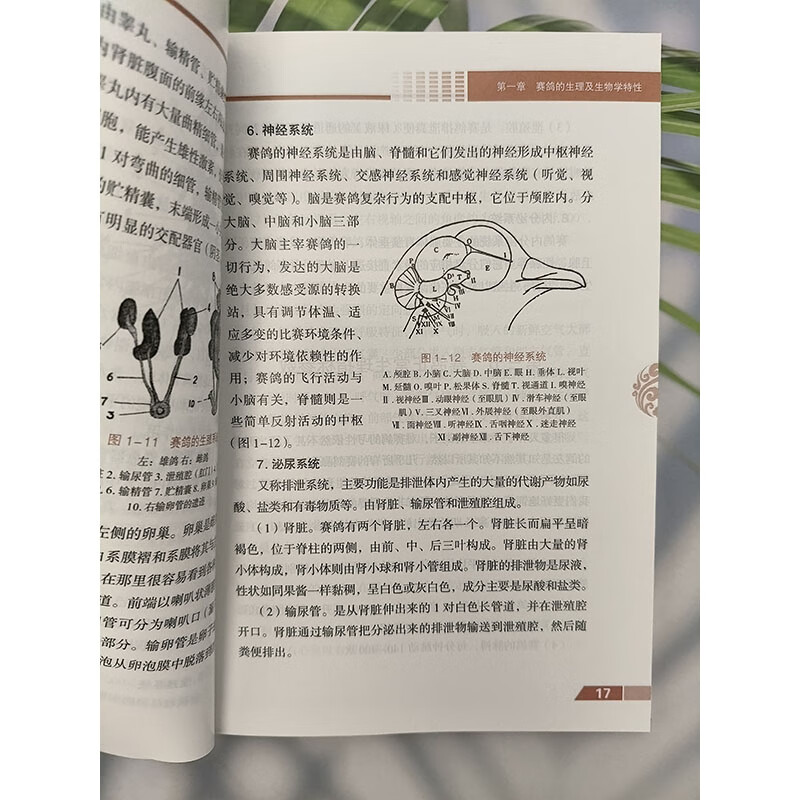 由睾丸、输精管、贮
内肾脏腹面的前缘左右
睾丸内有大量曲精细管,
胞,能产生雄性激素,
1 对弯曲的细管,输精
的贮精囊,末端形成一
明显的交配器官(阴
1
2
3
6
7
10
图 1-11 赛鸽的生殖
左:雄鸽 右:雌鸽
2. 输尿管 3. 泄殖腔(肛门)4
6. 输精管 7. 贮精囊 8. 卵巢
10. 右输卵管的遗迹
左侧的卵巢。卵巢是
由系膜褶和系膜将其与
在那里很容易看到各
道。前端以喇叭状薄
管可分为喇叭口(漏
部分。输卵管是卵子
泡从卵泡膜中脱落到
第一章 赛鸽的生理及生物学特性
6. 神经系统
赛鸽的神经系统是由脑、脊髓和它们发出的神经形成中枢神经
系统、周围神经系统、交感神经系统和感觉神经系统(听觉、视
觉、嗅觉等)。脑是赛鸽复杂行为的支配中枢,它位于颅腔内。分
大脑、中脑和小脑三部
分。大脑主宰赛鸽的一
切行为,发达的大脑是
绝大多数感受源的转换
站,具有调节体温、适
应多变的比赛环境条件、
减少对环境依赖性的作
用;赛鸽的飞行活动与
小脑有关,脊髓则是一
些简单反射活动的中枢
(图 1-12)。
图 1-12 赛鸽的神经系统
A. 颅腔 B. 小脑 C. 大脑 D. 中脑 E. 眼 H. 垂体 L. 视叶
M. 延髓 O. 嗅叶 P. 松果体 S. 脊髓 T. 视通道 Ⅰ. 嗅神经
Ⅱ. 视神经Ⅲ. 动眼神经(至眼肌)Ⅳ. 滑车神经(至眼
肌)Ⅴ. 三叉神经Ⅵ. 外展神经(至眼外直肌)
Ⅶ. 面神经Ⅷ. 听神经Ⅸ. 舌咽神经Ⅹ. 迷走神经
Ⅺ. 副神经Ⅻ. 舌下神经
7. 泌尿系统
又称排泄系统,主要功能是排泄体内产生的大量的代谢产物如尿
酸、盐类和有毒物质等。由肾脏、输尿管和泄殖腔组成。
(1)肾脏。赛鸽有两个肾脏,左右各一个。肾脏长而扁平呈暗
褐色,位于脊柱的两侧,由前、中、后三叶构成。肾脏由大量的肾
小体构成,肾小体则由肾小球和肾小管组成。肾脏的排泄物是尿液,
性状如同果酱一样黏稠,呈白色或灰白色,成分主要是尿酸和盐类。
(2)输尿管。是从肾脏伸出来的 1 对白色长管道,并在泄殖腔
开口。肾脏通过输尿管把分泌出来的排泄物输送到泄殖腔,然后随
粪便排出。
17